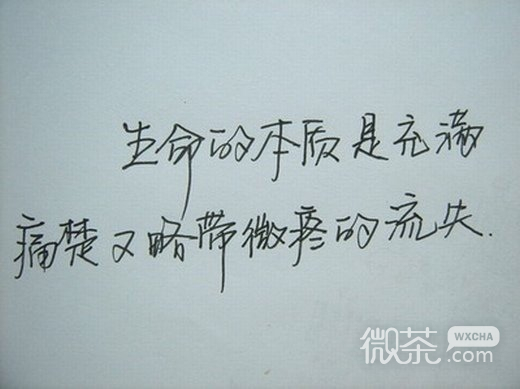 生命的本质是充满
痛楚又略带微疼的流失.
微茶 WXCHA